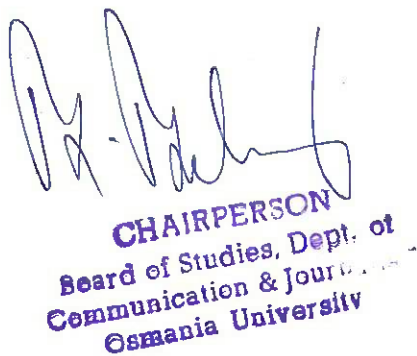 CHAIRPERSON
Board of Studies, Dept. of
Communication &
Osmania University